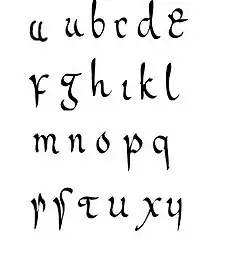 a u b c d e
f g h i k l
m n o p q
r ſ t u x y